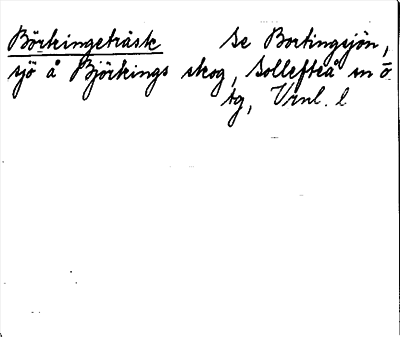 Börkingeträsk se Bortingsjön,
sjö å Björkings skog, Sollefteå sn ö.
tg, Vrml. l